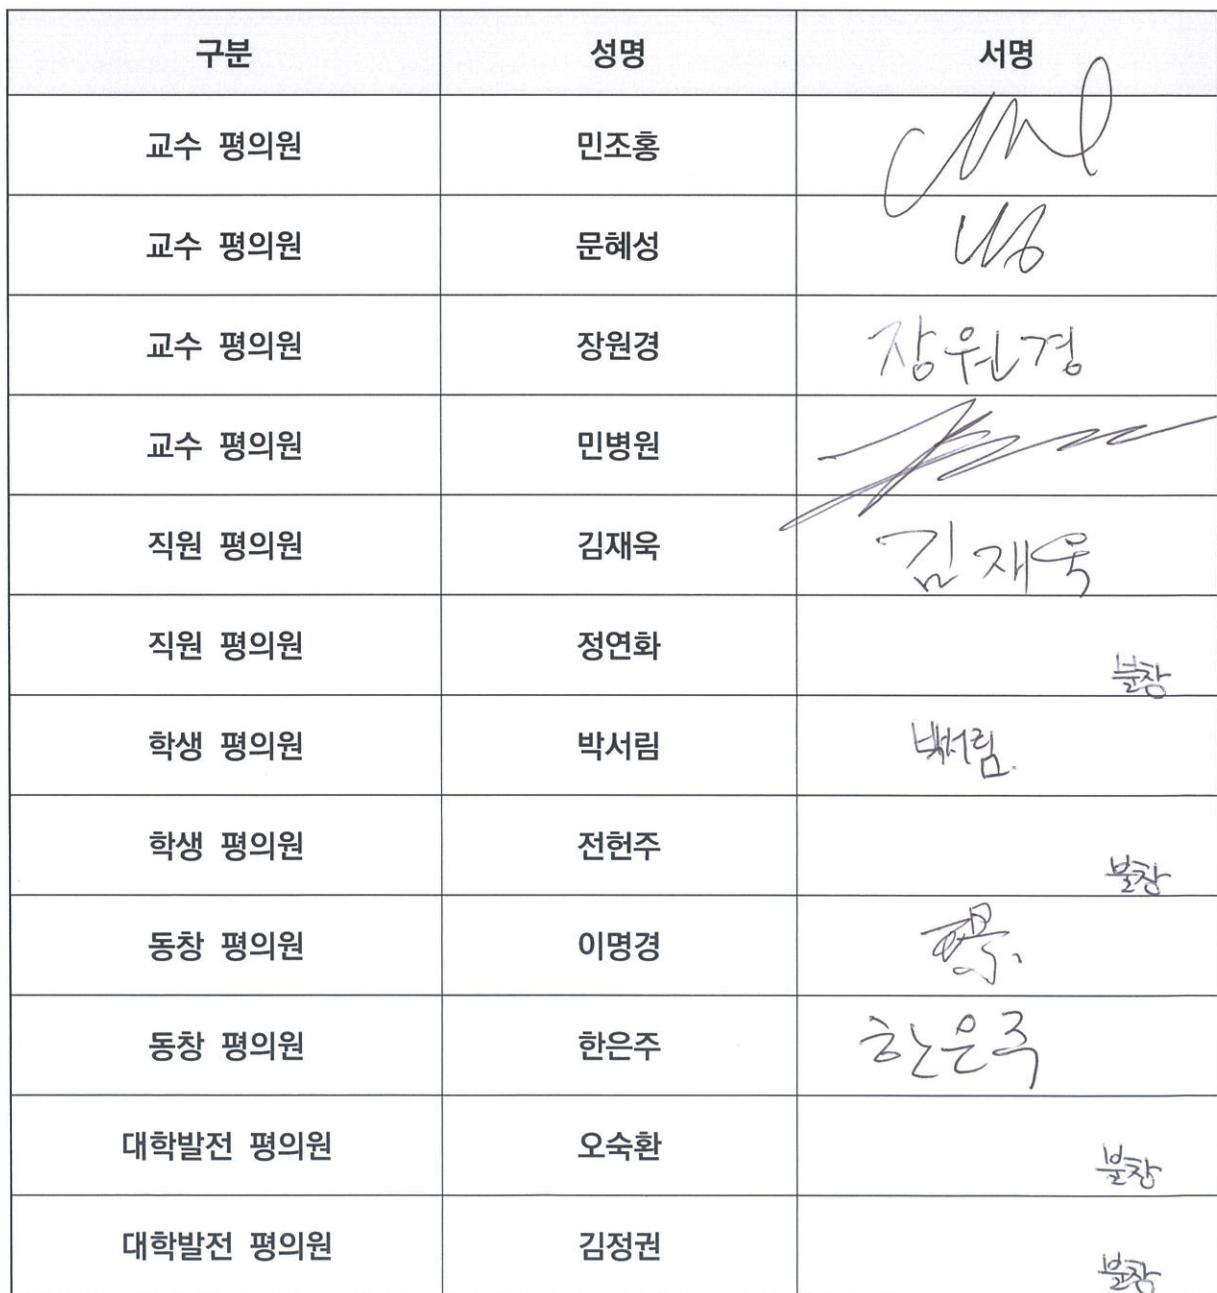 구분 성명 서명
교수 평의원 민조홍
교수 평의원 문혜성
교수 평의원 장원경 장원경
교수 평의원 민병원
직원 평의원 김재욱 김재욱
직원 평의원 정연화 불참
학생 평의원 박서림 박서림.
학생 평의원 전헌주 불참
동창 평의원 이명경
동창 평의원 한은주 한은주
대학발전 평의원 오숙환 불참
대학발전 평의원 김정권 불참